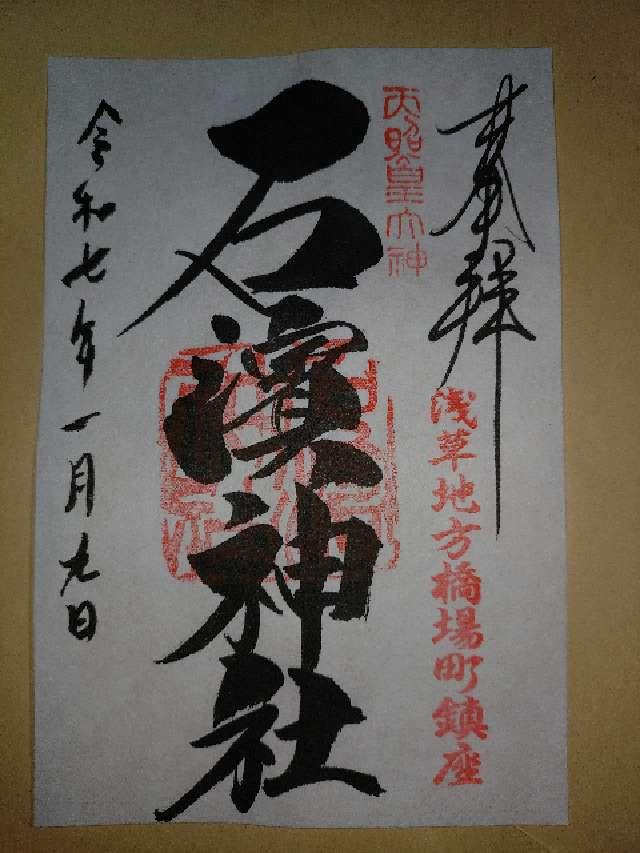 奉拝
浅草地方橋場町鎮座
天照皇大神
石濱神社
令和七年一月九日